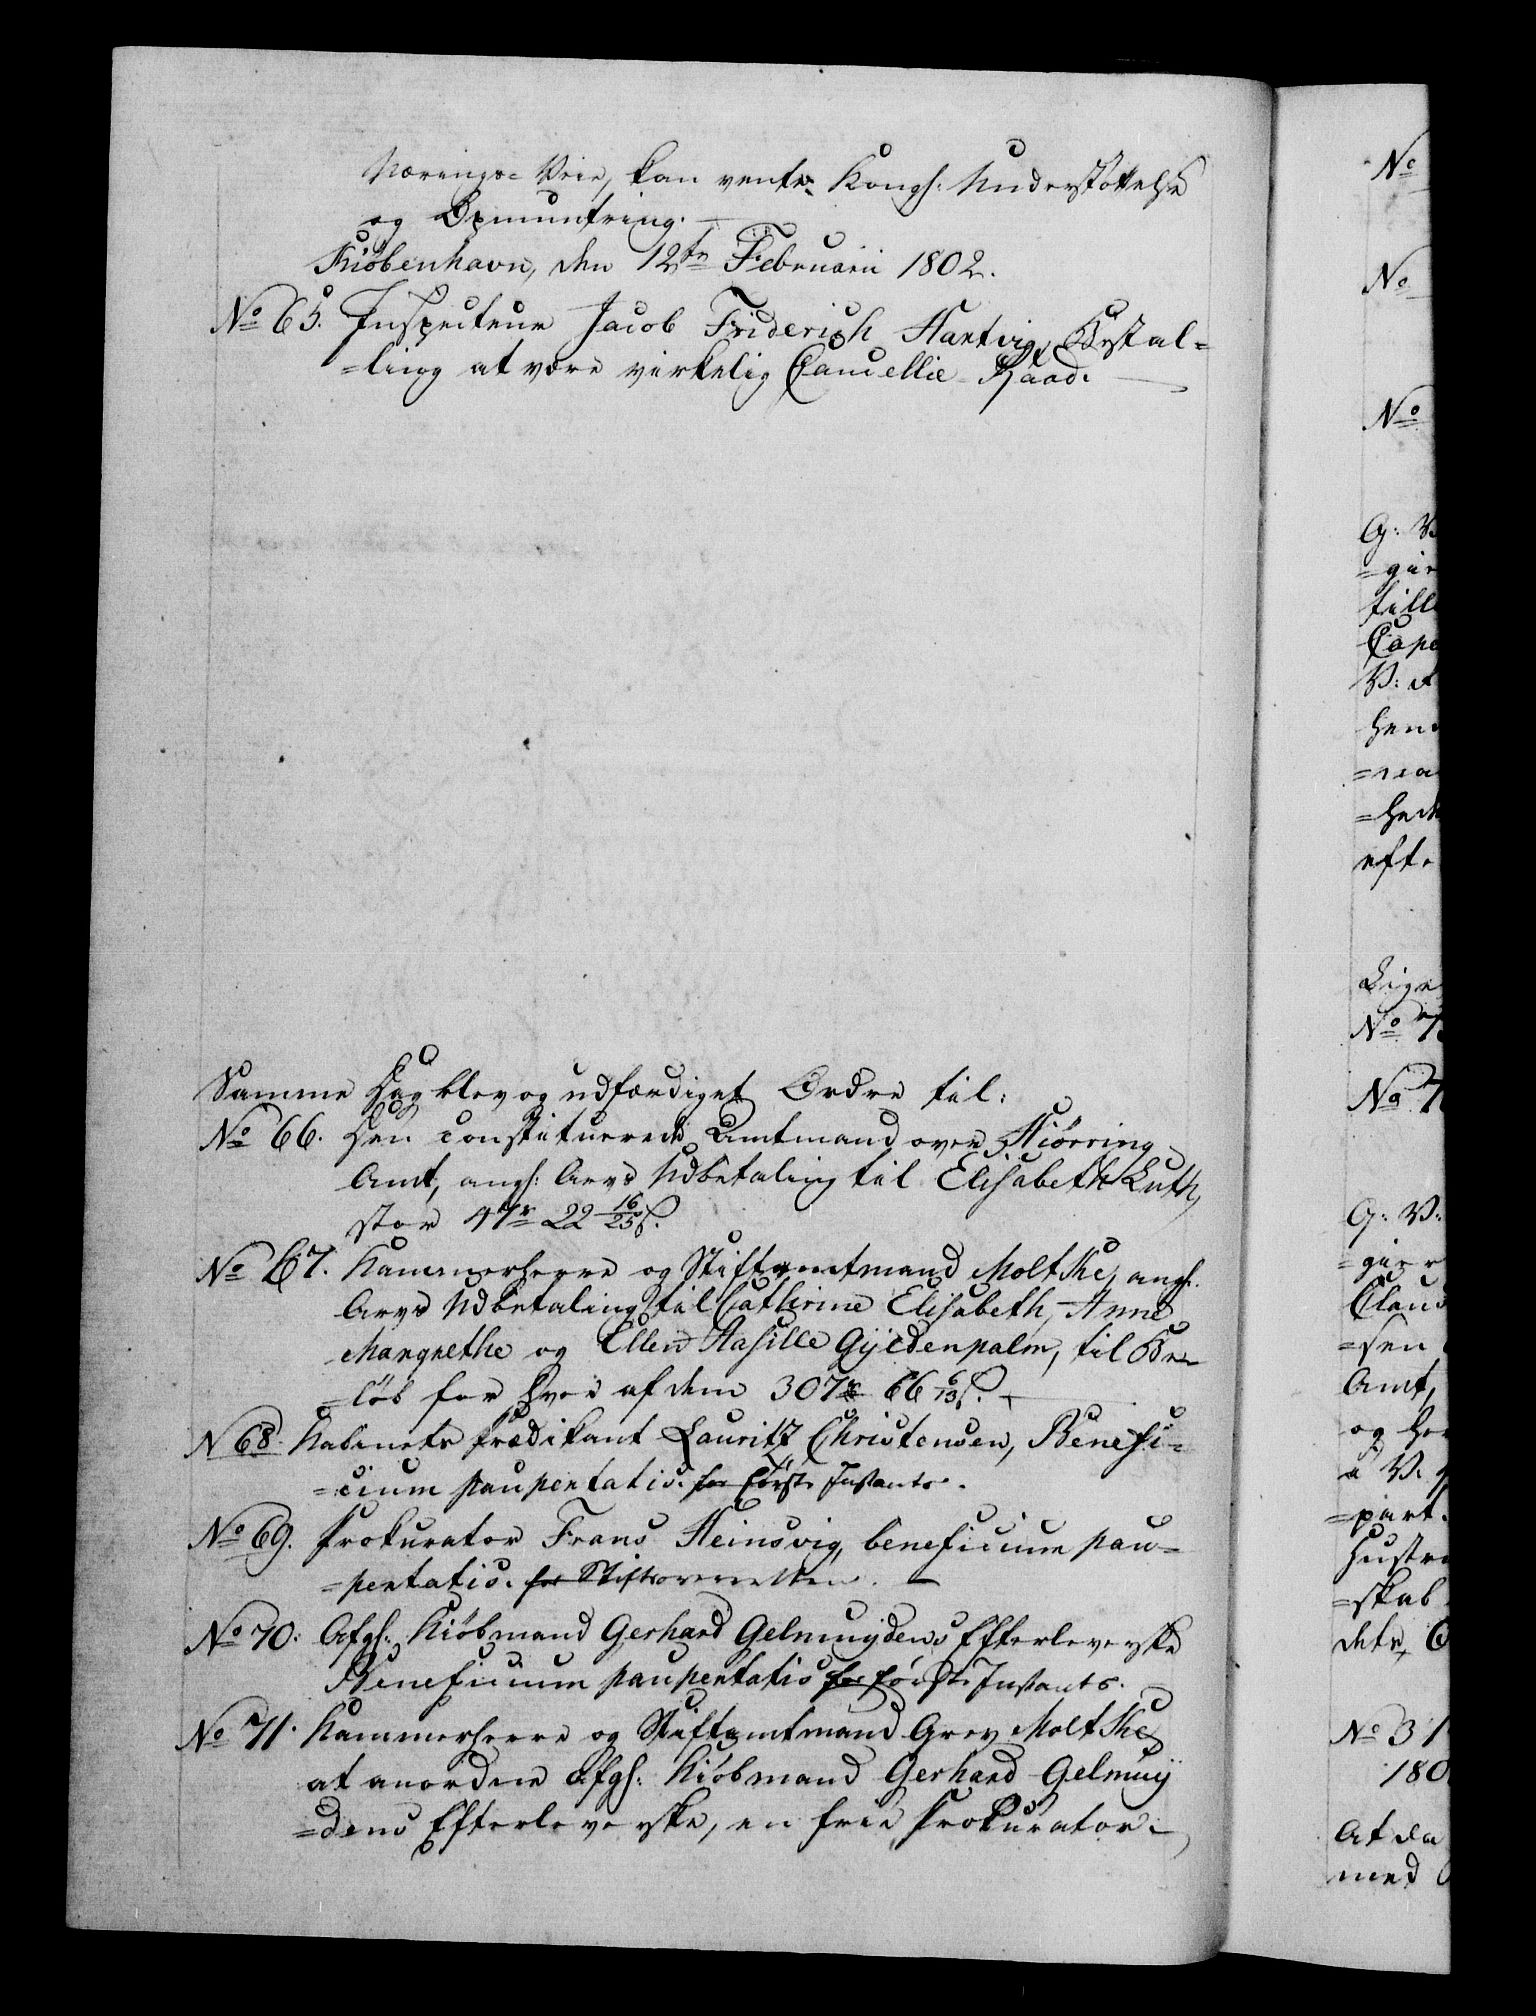 Nærings-Veie, kan vente Kongl: Understøttelse
og Opmuntring.
Kiøbenhavn, den 12te Februarii 1802.
No 65. Inspecteur Jacob Friderich Hartvig, Bestal=
=ling at være virkelig Cancellie-Raad.
Samme Dag blev og udfærdiget Ordre til:
No 66. Den constituerede Amtmand over Hiørring
Amt, angl: Arvs Udbetaling til Elisabeth Luth,
stor 47r 22 16/25 s.
No 67. Kammerherre og Stiftamtmand Moltke, angl.
Arvs Udbetaling til Cathrine Elisabeth, Anne
Margrethe og Ellen Hasille Gyldenpalm, til Be=
=løb for hver af dem 307r 66 6/13 s.
N 68. Kabinets Prædikant Lauritz Christensen, Benefi=
=cium paupertatis. for første Instants.
No 69. Prokurator Frans Heinsvig, beneficium pau=
=pertatis. for Stiftsoverretten.
No 70: Afgl: Kiøbmand Gerhard Gelmuydens Efterleverske
Beneficium paupertatis for første Instants.
No 71. Kammerherre og Stiftamtmand Grev Moltke
at anordne Afgl: Kiøbmand Gerhard Gelmuy
=dens Efterleverske, en frie Prokurator.
No
No
No
G: V
=gie
till
Cape
V: at
hen
=nea
=hed
eft.
Lige
No 7
No 7
G: V:
=gier
Claus
=sen
Amt,
og he
a V.
=part.
Hustru
=skab
dets,
No 31
180
At da
med